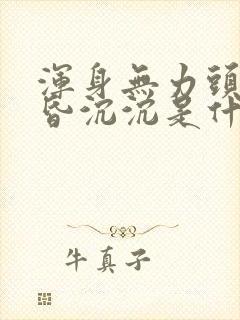 渾身無力頭
昏沉沉是什
牛真子